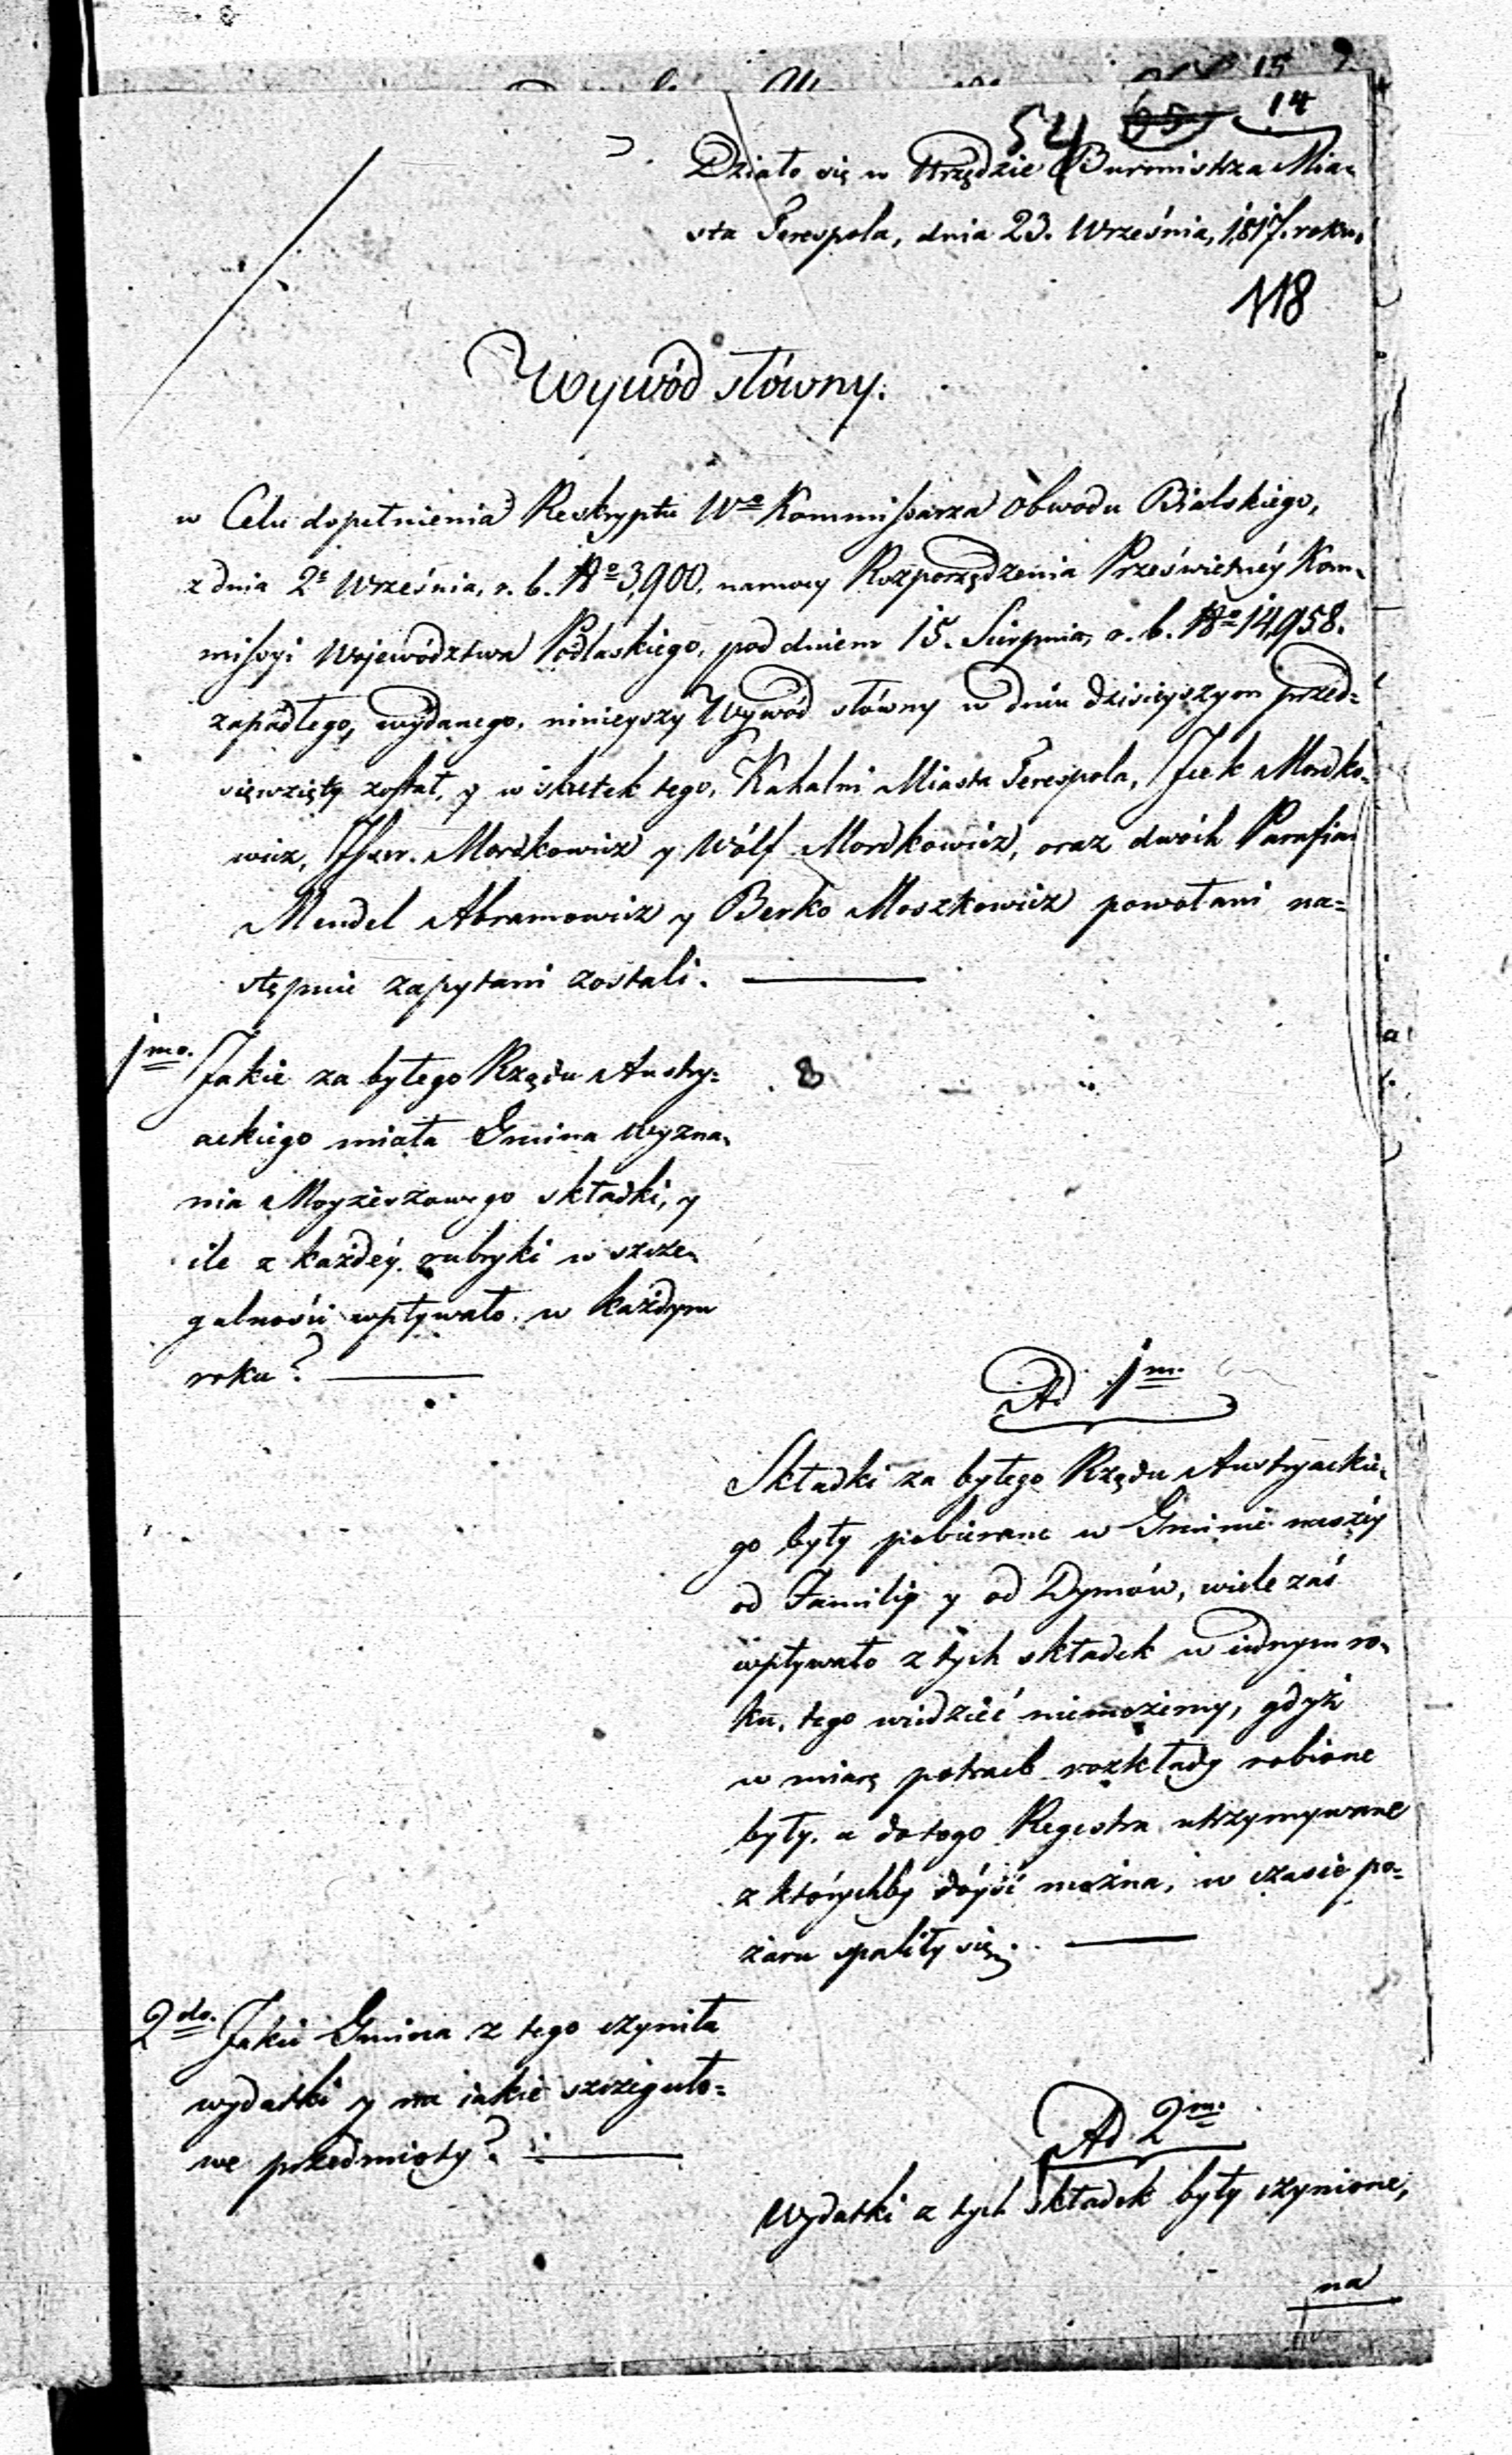 15
54 65 14
Działo się w Urzędzie Burmistrza Mia=
sta Terespola, dnia 23. Września, 1817. roku.
118
Wywód słówny.
w Celu dopełnienia Reskryptu Wo Kommissarza Obwodu Bialskiego,
z dnia 2o Września, r. b. No 3,900. namocy Rozporządzenia Prześwietnéy Kom=
missyi Województwa Podlaskiego, pod dniem 15. Sierpnia, r. b. No 14,958.
zapadłego, wydanego, ninieyszy Wywód słówny w dniu dzisieyszym przed=
sięwzięty został, y w skutek tego, Kahalni Miasta Terespola, Icek Mordko=
wicz, Mordkowicz y Wólf Mordkowicz, oraz dwóch Parafian
Mendel Abramowicz y Berko Moszkowicz powołani na=
stępnie zapytani zostali.
1mo. Jakie za byłego Rządu Austry=
ackiego miała Gmina Wyzna=
nia Moyżeszowego składki, y
ile z każdéy rubryki w szcze=
gulności wpływało w każdym
roku?
Ad 1m.
Składki za byłego Rządu Austryackie=
go były pobierane w Gminie naszéy
od Familiy y od Dymów, wiele zaś
wpływało z tych składek w iednym ro=
ku, tego wiedzieć niemożemy, gdyż
w miarę potrzeb rozkłady robione
były, a do tego Regestra utrzymywane
z którychby dóyść można, w czasie po=
żaru spaliły się.
2do. Jakie Gmina z tego czyniła
wydatki y na iakie szczeguło=
we przedmioty?
Ad 2m.
Wydatki z tych składek były czynione,
na